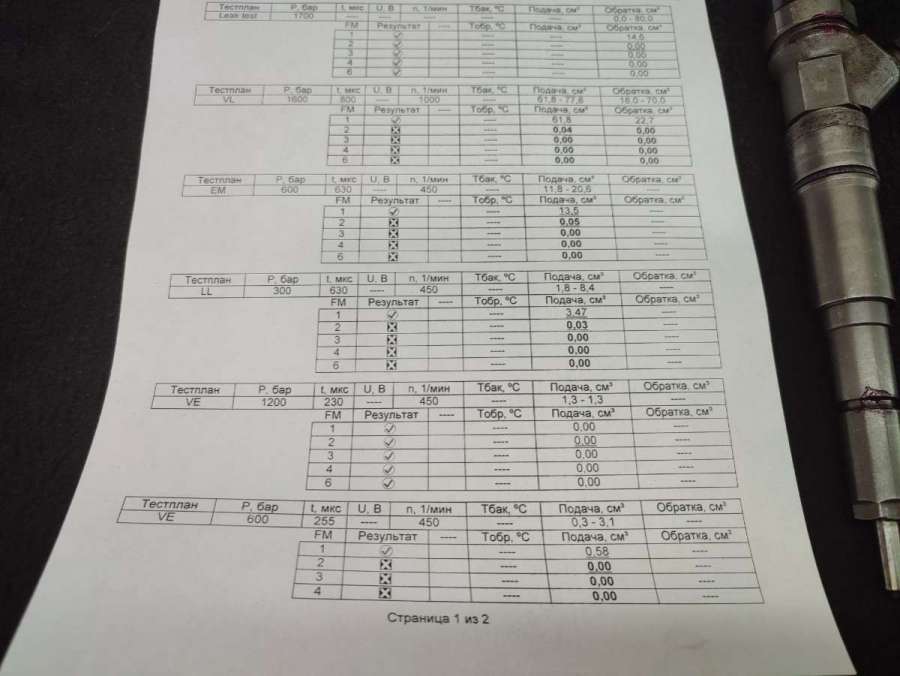 Тестплан P, бар t, мкс U, В n, 1/мин Тбак, ºС Подача, см³ Обратка, см³
Leak test 1700 ---- ---- ---- ---- ---- 0,0 - 80,0
FM Результат ---- Тобр, ºС Подача, см³ Обратка, см³
1 ---- ---- 14,6
2 ---- ---- 0,00
3 ---- ---- 0,00
4 ---- ---- 0,00
6 ---- ---- 0,00
Тестплан P, бар t, мкс U, В n, 1/мин Тбак, ºС Подача, см³ Обратка, см³
VL 1600 800 ---- 1000 ---- 61,8 - 77,6 16,0 - 70,0
FM Результат ---- Тобр, ºС Подача, см³ Обратка, см³
1 ---- 61,8 22,7
2 ---- 0,04 0,00
3 ---- 0,00 0,00
4 ---- 0,00 0,00
6 ---- 0,00 0,00
Тестплан P, бар t, мкс U, В n, 1/мин Тбак, ºС Подача, см³ Обратка, см³
EM 600 630 ---- 450 ---- 11,8 - 20,6 ----
FM Результат ---- Тобр, ºС Подача, см³ Обратка, см³
1 ---- 13,5 ----
2 ---- 0,05 ----
3 ---- 0,00 ----
4 ---- 0,00 ----
6 ---- 0,00 ----
Тестплан P, бар t, мкс U, В n, 1/мин Тбак, ºС Подача, см³ Обратка, см³
LL 300 630 ---- 450 ---- 1,8 - 8,4 ----
FM Результат ---- Тобр, ºС Подача, см³ Обратка, см³
1 ---- 3,47 ----
2 ---- 0,03 ----
3 ---- 0,00 ----
4 ---- 0,00 ----
6 ---- 0,00 ----
Тестплан P, бар t, мкс U, В n, 1/мин Тбак, ºС Подача, см³ Обратка, см³
VE 1200 230 ---- 450 ---- 1,3 - 1,3 ----
FM Результат ---- Тобр, ºС Подача, см³ Обратка, см³
1 ---- 0,00 ----
2 ---- 0,00 ----
3 ---- 0,00 ----
4 ---- 0,00 ----
6 ---- 0,00 ----
Тестплан P, бар t, мкс U, В n, 1/мин Тбак, ºС Подача, см³ Обратка, см³
VE 600 255 ---- 450 ---- 0,3 - 3,1 ----
FM Результат ---- Тобр, ºС Подача, см³ Обратка, см³
1 ---- 0,58 ----
2 ---- 0,00 ----
3 ---- 0,00 ----
4 ---- 0,00 ----
Страница 1 из 2